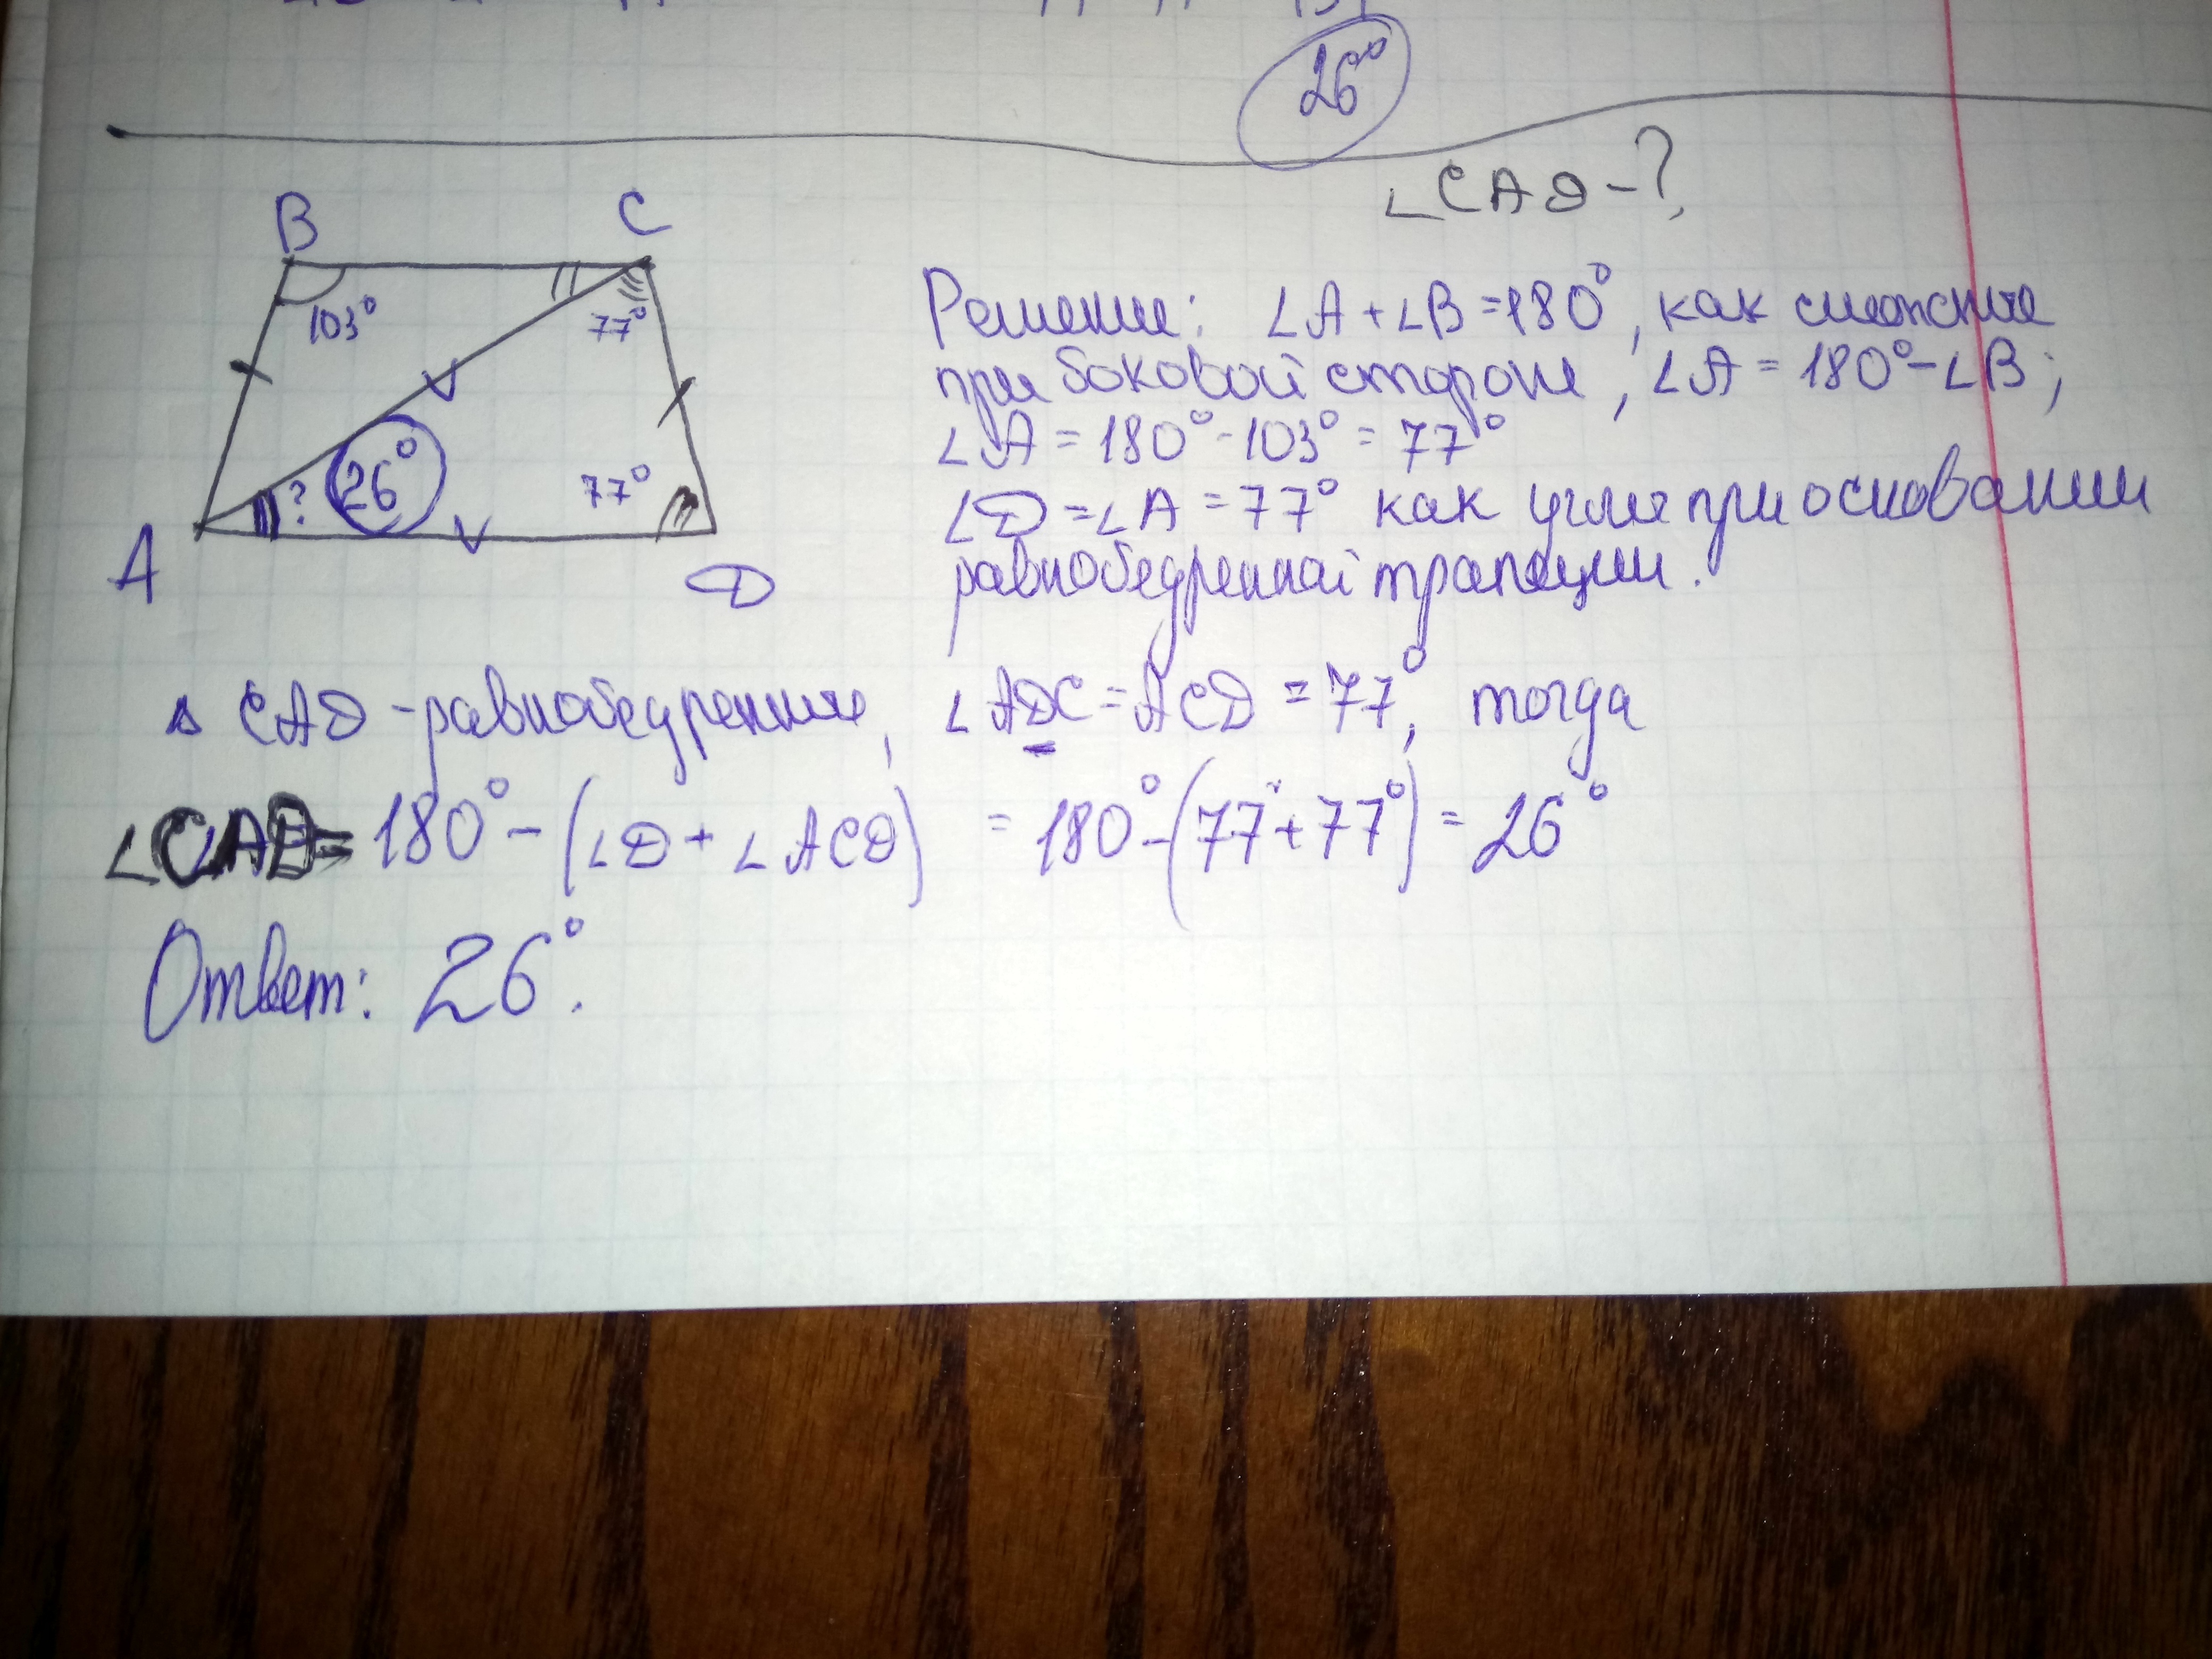 26°
∠CAD-?
B C
103° 77°
? 26° 77°
A D
Решение: ∠A+∠B=180°, как смежные
при боковой стороне, ∠A=180°-∠B;
∠A=180°-103°=77°
∠D=∠A=77° как углы при основании
равнобедренной трапеции.
△ CAD - равнобедренные, ∠ADC=ACD=77°, тогда
∠CAD=180°-(∠D+∠ACD) =180°-(77°+77°)=26°
Ответ: 26°.